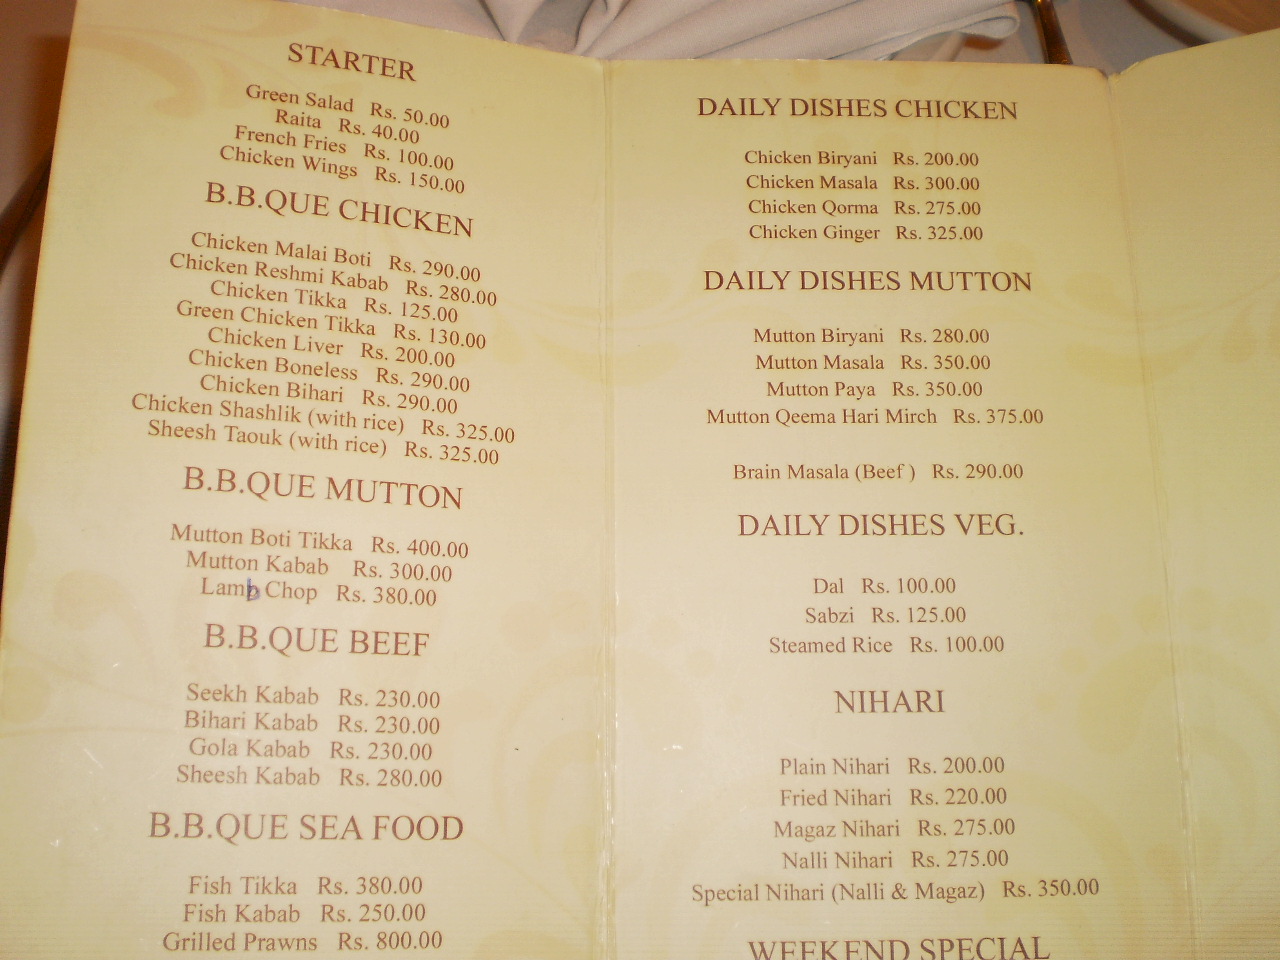 STARTER
Green Salad Rs. 50.00
Raita Rs. 40.00
French Fries Rs. 100.00
Chicken Wings Rs. 150.00
B.B.QUE CHICKEN
Chicken Malai Boti Rs. 290.00
Chicken Reshmi Kabab Rs. 280.00
Chicken Tikka Rs. 125.00
Green Chicken Tikka Rs. 130.00
Chicken Liver Rs. 200.00
Chicken Boneless Rs. 290.00
Chicken Bihari Rs. 290.00
Chicken Shashlik (with rice) Rs. 325.00
Sheesh Taouk (with rice) Rs. 325.00
B.B.QUE MUTTON
Mutton Boti Tikka Rs. 400.00
Mutton Kabab Rs. 300.00
Lamb Chop Rs. 380.00
B.B.QUE BEEF
Seekh Kabab Rs. 230.00
Bihari Kabab Rs. 230.00
Gola Kabab Rs. 230.00
Sheesh Kabab Rs. 280.00
B.B.QUE SEA FOOD
Fish Tikka Rs. 380.00
Fish Kabab Rs. 250.00
Grilled Prawns Rs. 800.00
DAILY DISHES CHICKEN
Chicken Biryani Rs. 200.00
Chicken Masala Rs. 300.00
Chicken Qorma Rs. 275.00
Chicken Ginger Rs. 325.00
DAILY DISHES MUTTON
Mutton Biryani Rs. 280.00
Mutton Masala Rs. 350.00
Mutton Paya Rs. 350.00
Mutton Qeema Hari Mirch Rs. 375.00
Brain Masala (Beef ) Rs. 290.00
DAILY DISHES VEG.
Dal Rs. 100.00
Sabzi Rs. 125.00
Steamed Rice Rs. 100.00
NIHARI
Plain Nihari Rs. 200.00
Fried Nihari Rs. 220.00
Magaz Nihari Rs. 275.00
Nalli Nihari Rs. 275.00
Special Nihari (Nalli & Magaz) Rs. 350.00
WEEKEND SPECIAL